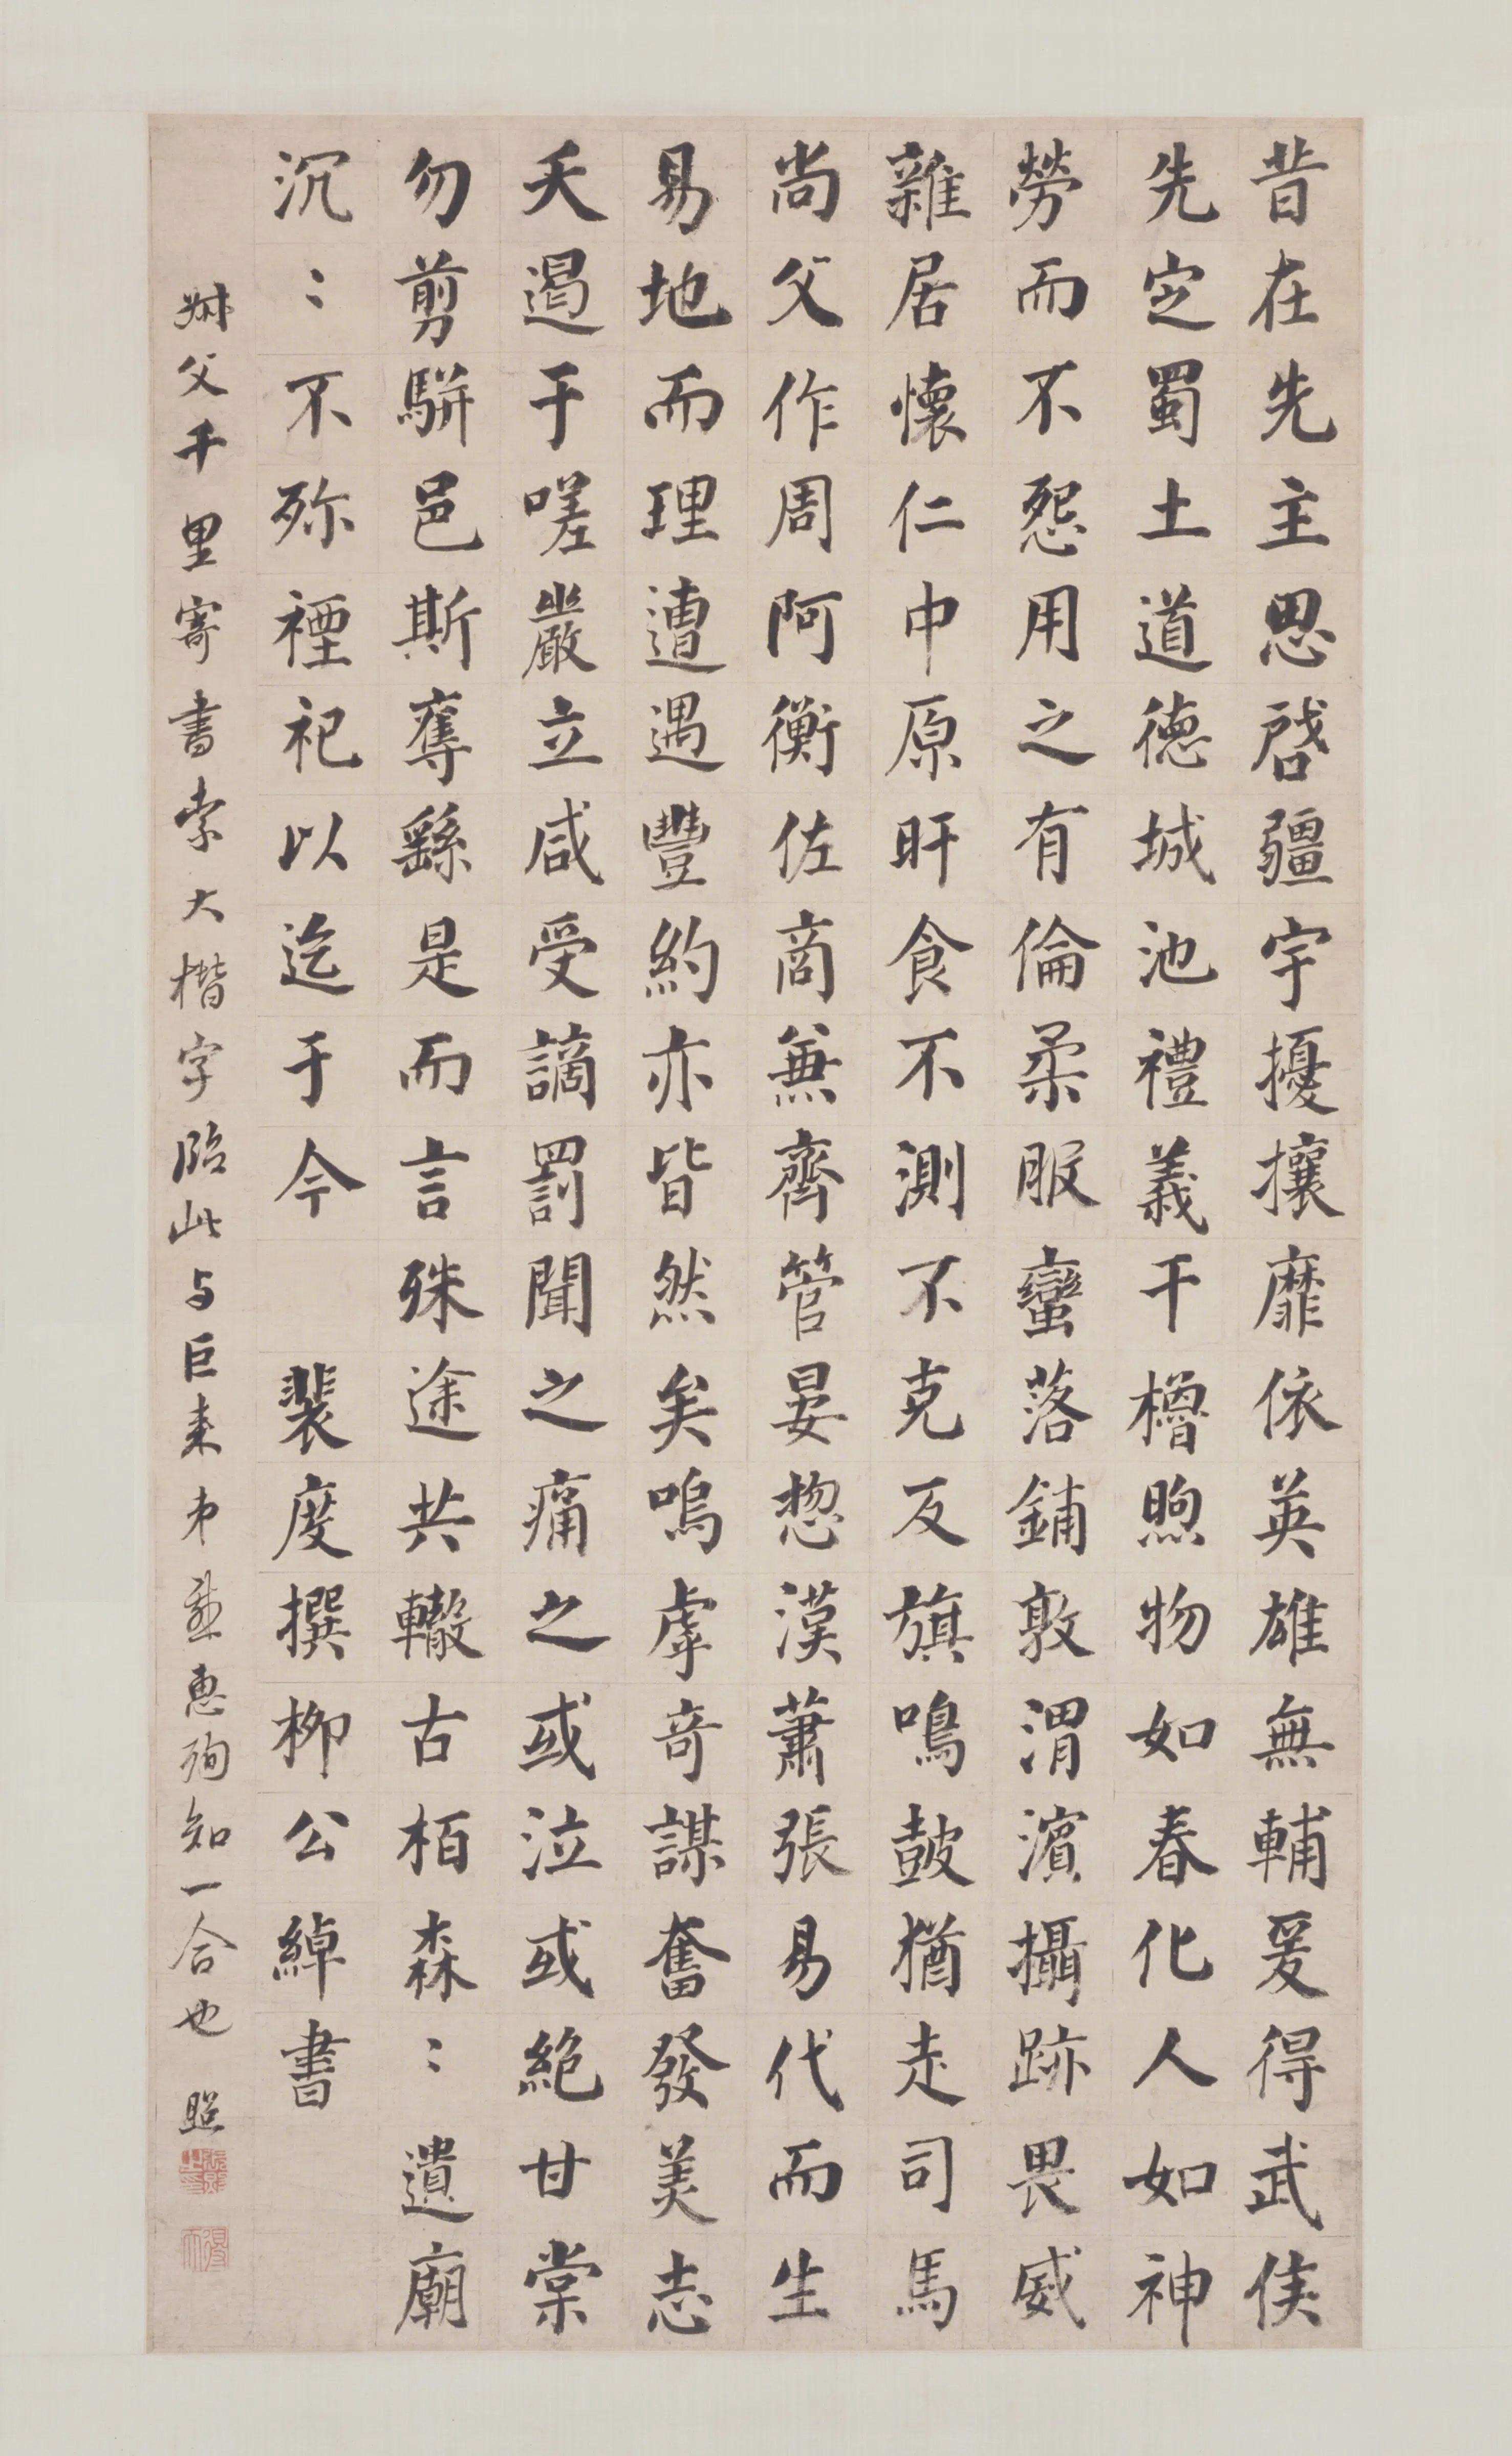 昔在先主思啓疆宇擾攘靡依英雄無輔爰得武侯
先定蜀土道德城池禮義干櫓煦物如春化人如神
勞而不怨用之有倫柔服蠻落鋪敦渭濱攝跡畏威
雜居懷仁中原旰食不測不克反旗鳴鼓猶走司馬
尚父作周阿衡佐商兼齊管晏揔漢蕭張易代而生
易地而理遭遇豐約亦皆然矣嗚虖奇謀奮發美志
夭遏于嗟嚴立咸受謫罰聞之痛之或泣或絕甘棠
勿剪駢邑斯奪繇是而言殊途共轍古柏森〻遺廟
沉〻不殄禋祀以迄于今 裴度撰柳公綽書
叔父千里寄書索大楷字臨此与巨來弟並惠殉知一合也 照